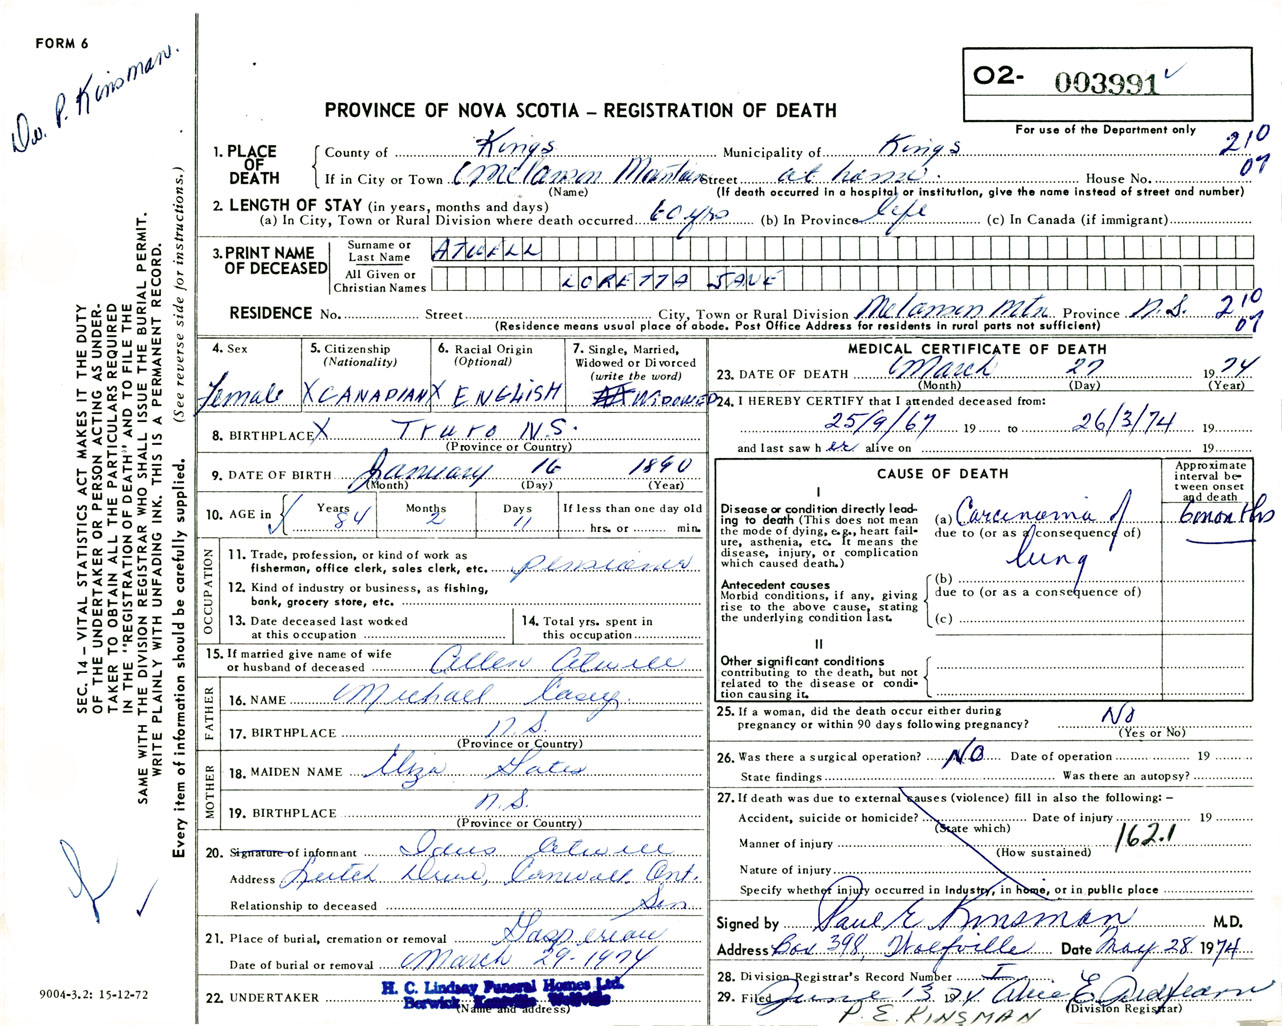 FORM 6
Dr. P. Kinsman.
O2- 003991
For use of the Department only
PROVINCE OF NOVA SCOTIA – REGISTRATION OF DEATH
210
07
1. PLACE OF DEATH
County of Kings Municipality of Kings
If in City or Town Melanson Mountain Street at home. House No.
(Name) (If death occurred in a hospital or institution, give the name instead of street and number)
2. LENGTH OF STAY (in years, months and days)
(a) In City, Town or Rural Division where death occurred 60 yrs (b) In Province life (c) In Canada (if immigrant)
3. PRINT NAME OF DECEASED
Surname or Last Name ATWELL
All Given or Christian Names LORETTA JANE
RESIDENCE No. Street City, Town or Rural Division Melanson Mtn Province N.S. 210
07
(Residence means usual place of abode. Post Office Address for residents in rural parts not sufficient)
4. Sex
Female
5. Citizenship
(Nationality)
X CANADIAN
6. Racial Origin
(Optional)
X ENGLISH
7. Single, Married,
Widowed or Divorced
(write the word)
WIDOWED
8. BIRTHPLACE X Truro N.S.
(Province or Country)
9. DATE OF BIRTH January 16 1890
(Month) (Day) (Year)
10. AGE in Years Months Days If less than one day old
84 2 11 hrs. or min.
OCCUPATION
11. Trade, profession, or kind of work as
fisherman, office clerk, sales clerk, etc. pensioner
12. Kind of industry or business, as fishing,
bank, grocery store, etc.
13. Date deceased last worked
at this occupation
14. Total yrs. spent in
this occupation
15. If married give name of wife
or husband of deceased Allen Atwell
FATHER
16. NAME Michael Casey
17. BIRTHPLACE N.S.
(Province or Country)
MOTHER
18. MAIDEN NAME Eliza Gates
19. BIRTHPLACE N.S.
(Province or Country)
20. Signature of informant Atwell
Address Drive, Cornwall. Ont.
Relationship to deceased Son
21. Place of burial, cremation or removal Gaspereau
Date of burial or removal March 29-1974
22. UNDERTAKER H. C. Lindsay Funeral Homes Ltd.
Berwick Kentville Wolfville
(Name and address)
MEDICAL CERTIFICATE OF DEATH
23. DATE OF DEATH March 27 1974
(Month) (Day) (Year)
24. I HEREBY CERTIFY that I attended deceased from:
25/9/67 19 to 26/3/74 19
and last saw her alive on 19
CAUSE OF DEATH
Approximate
interval be-
tween onset
and death
I
Disease or condition directly lead-
ing to death (This does not mean
the mode of dying, e.g., heart fail-
ure, asthenia, etc. It means the
disease, injury, or complication
which caused death.)
(a) Carcinoma of 6 months
due to (or as a consequence of)
lung
Antecedent causes
Morbid conditions, if any, giving
rise to the above cause, stating
the underlying condition last.
(b)
due to (or as a consequence of)
(c)
II
Other significant conditions
contributing to the death, but not
related to the disease or condi-
tion causing it.
25. If a woman, did the death occur either during
pregnancy or within 90 days following pregnancy? No
(Yes or No)
26. Was there a surgical operation? NO Date of operation 19
State findings Was there an autopsy?
27. If death was due to external causes (violence) fill in also the following: –
Accident, suicide or homicide? Date of injury 19
(State which)
162.1
Manner of injury
(How sustained)
Nature of injury
Specify whether injury occurred in Industry, in home, or in public place
Signed by Paul E. Kinsman M.D.
Address Box 398, Wolfville Date May 28 1974
28. Division Registrar's Record Number I
29. Filed June 13 1974 Alice E.
(Division Registrar)
P. E. KINSMAN
SEC. 14 – VITAL STATISTICS ACT MAKES IT THE DUTY
OF THE UNDERTAKER OR PERSON ACTING AS UNDER-
TAKER TO OBTAIN ALL THE PARTICULARS REQUIRED
IN THE "REGISTRATION OF DEATH" AND TO FILE THE
SAME WITH THE DIVISION REGISTRAR WHO SHALL ISSUE THE BURIAL PERMIT.
WRITE PLAINLY WITH UNFADING INK. THIS IS A PERMANENT RECORD.
Every item of information should be carefully supplied. (See reverse side for instructions.)
9004-3.2: 15-12-72